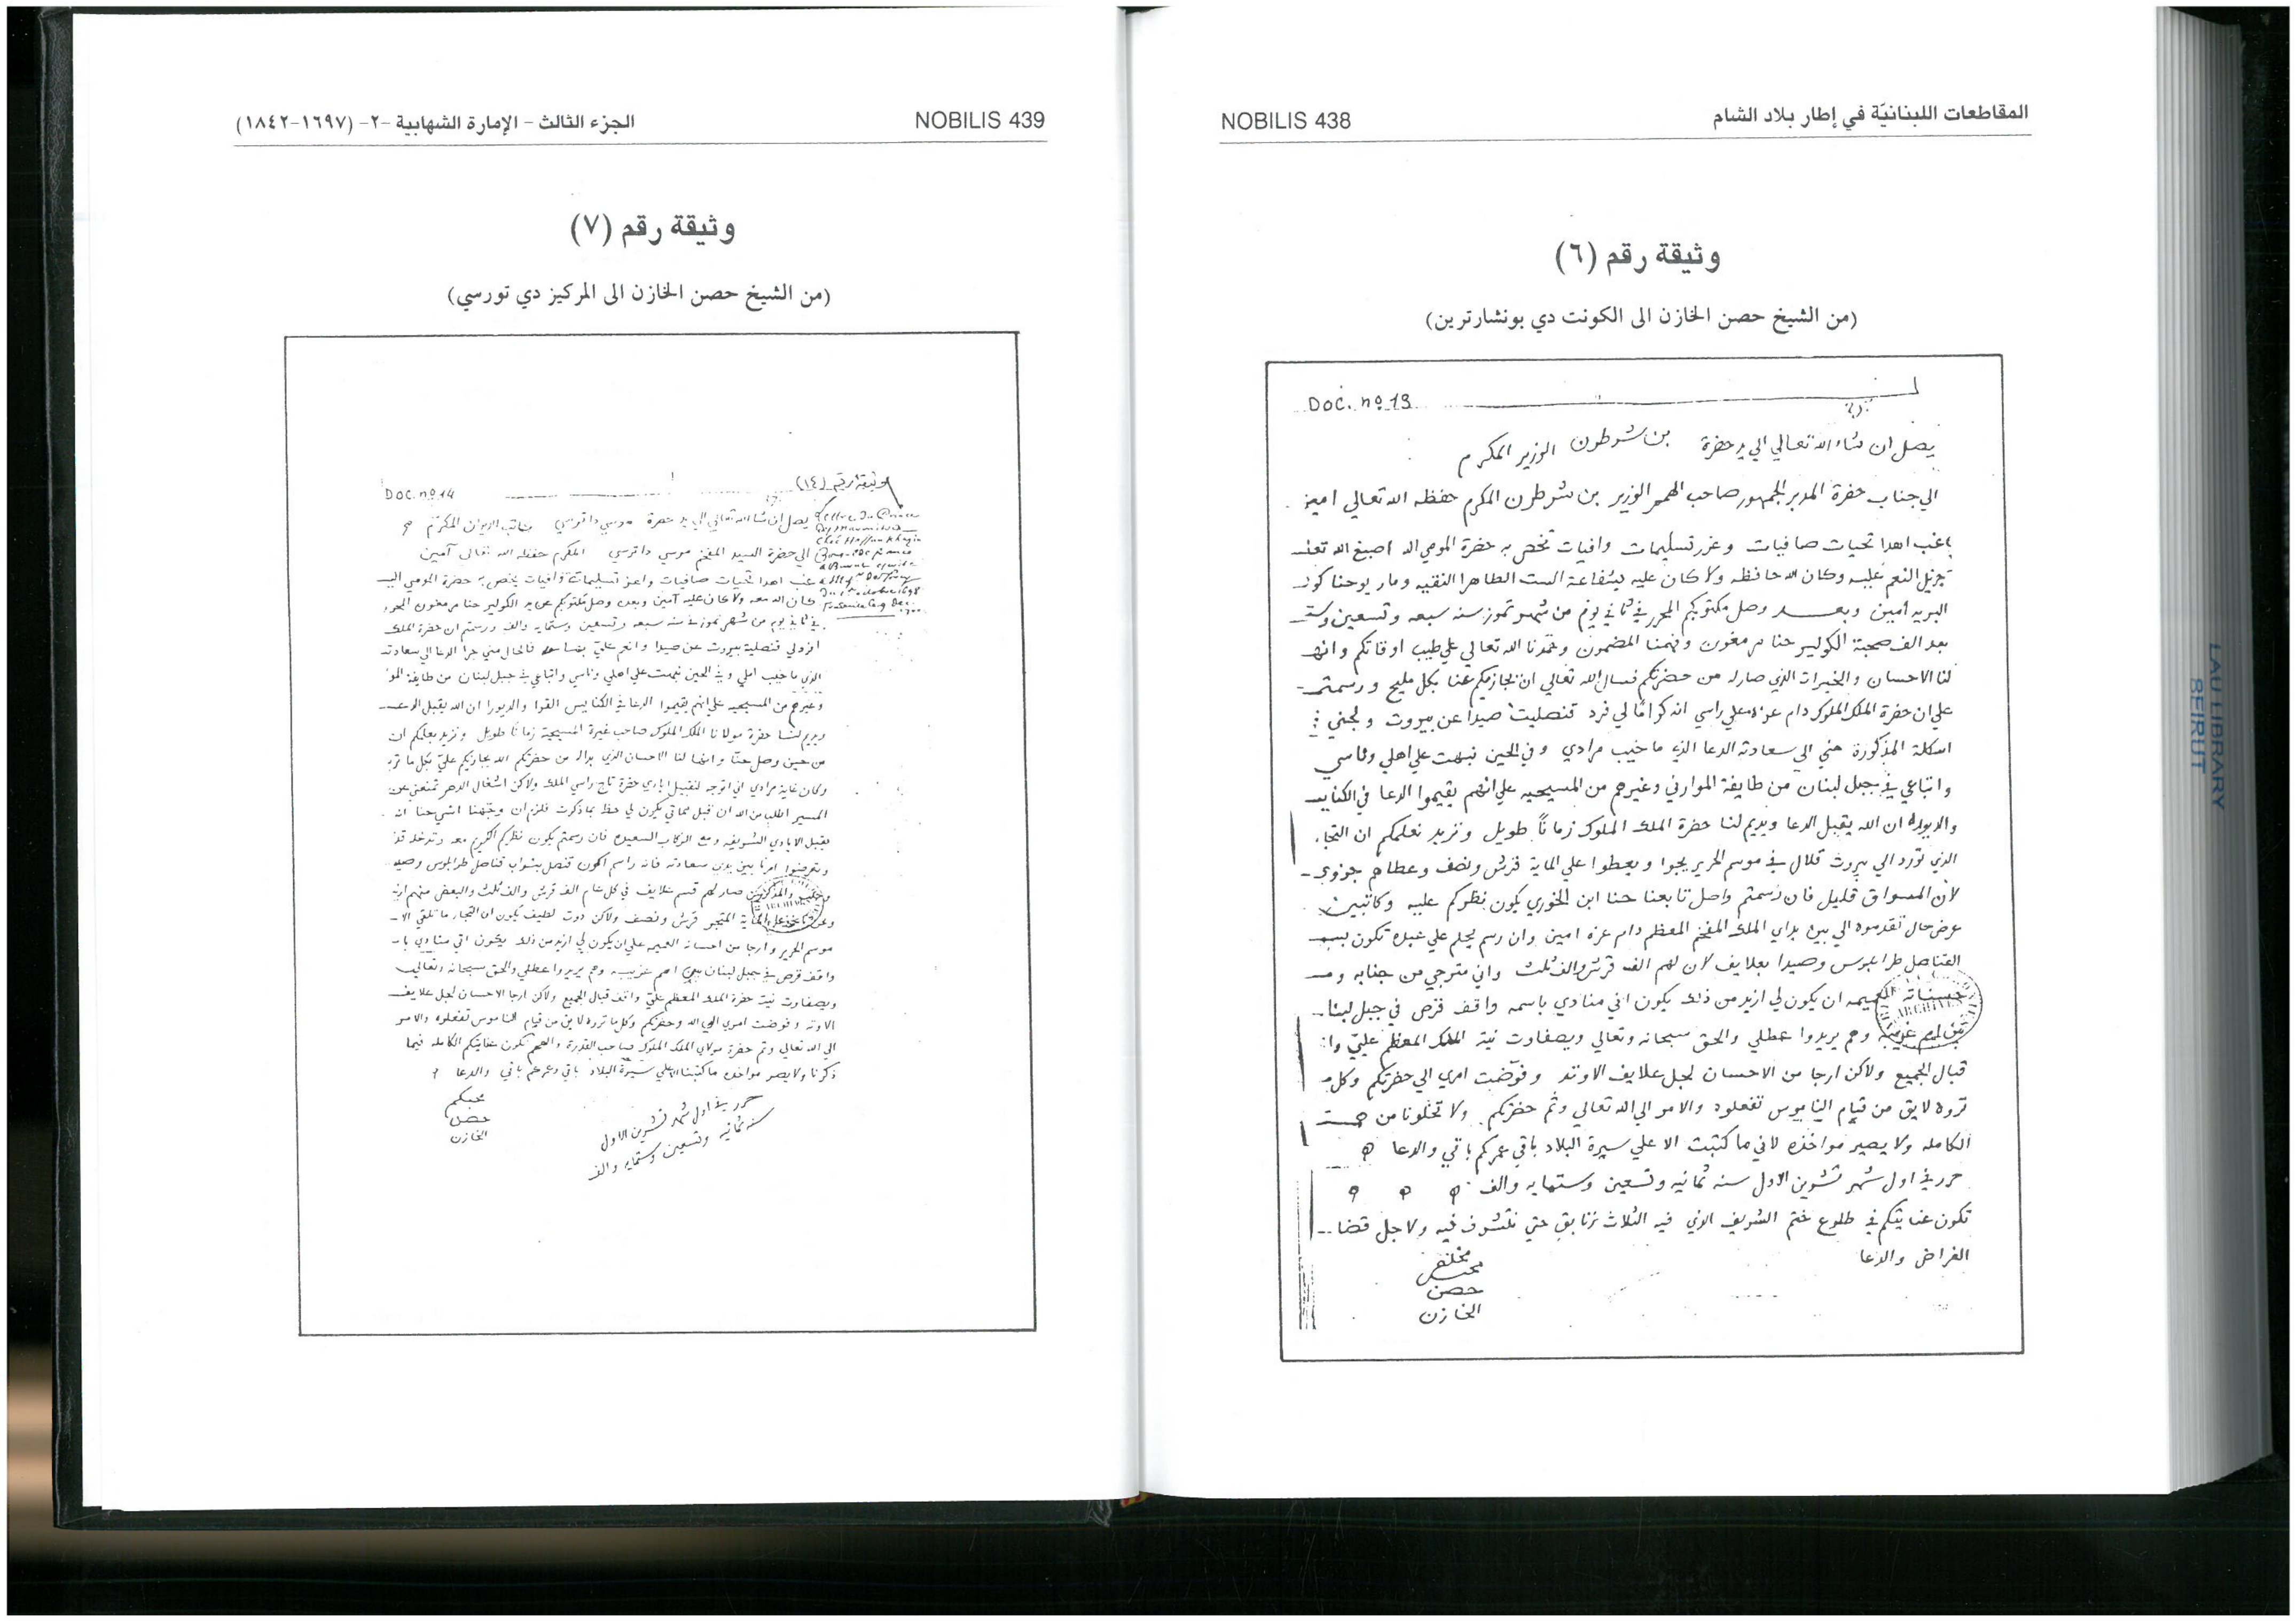 المقاطعات اللبنانيّة في إطار بلاد الشام
NOBILIS 438
وثيقة رقم (٦)
(من الشيخ حصن الخازن الى الكونت دي بونشارترين)
Doc. nº 13
يصل ان شاء الله تعالي الي يد حضرة بن شرطرون الوزير المكرم
الي جناب حضرة المدبر الجمهور صاحب الهمم الوزير بن شرطرن المكرم حفظه الله تعالي امين
غب اهدا تحيات صافيات وغرر تسليمات وافيات تخص به حضرة المومي اله اصبغ الله تعـ
بجزيل النعم عليه وكان الله حافظه ولا كان عليه بشفاعة الست الطاهرا النقيه ومار يوحنا
البريه امين وبعد وصل مكتوبكم المحرر في ثاني يوم من شهر تموز سنه سبعه وتسعين وستـ
بعد الف صحبة الكولير حنا مرمغون وفهمنا المضمون وحمدنا الله تعالي علي طيب اوقاتكم وانهـ
لنا الاحسان والخيرات الذي صار له من حضرتكم فنسال الله تعالي ان يجازيكم عنا بكل مليح ورسمتم
علي ان حضرة الملك الملوك دام عزه علي راسي انه كراما لي فرد قنصليت صيدا عن بيروت
اسكلة المذكورة مني الي سعادته الدعا الذي ما خيب مرادي وفي الحين نبهت علي اهلي وناسي
واتباعي في جبل لبنان من طايفة الموارني وغيرهم من المسيحيه علي انهم يقيموا الدعا في الكنايـ
والديوره ان الله يقبل الدعا ويديم لنا حضرة الملك الملوك زمانا طويل ونزيد نعلمكم ان التجا
الذي تورد الي بيروت قلال في موسم الحرير يجوا ويعطوا علي الماية قرش ونصف وعطاهم جزوي
لان المسواق قليل فان رسمتم واصل تابعنا حنا ابن الخوري يكون نظركم عليه وكاتبين
عرض حال تقدموه الي بين يداي الملك المفخم المعظم دام عزه امين وان رسم يحلم علي عبده تكون
القناصل طرابلوس وصيدا بعلايف لان لهم الف قرش والف ثلث واني مترجي من جنابه ومـ
العميمه ان يكون لي ازيد من ذلك يكون اني منادي باسمه واقف قزض في جبل لبنا
وهم يريدوا عطلي والحق سبحانه وتعالي وبصفاوت نية الملك المعظم عليّ وا
قبال الجميع ولاكن ارجا من الاحسان لجل علايف الاوتد وفوضت امري الي حضرتكم وكلـ
تروه لايق من قيام الناموس تفعلوه والامر الي الله تعالي وثم حضرتكم ولا تخلونا من
الكامله ولا يصير مواخذه لاني ما كتبت الا علي سيرة البلاد باقي عمركم باقي والدعا
حرر في اول شهر تشرين الاول سنه ثمانيه وتسعين وستمايه والف
تكون عنايتكم في طلوع ختم الشريف الذي فيه الثلاث زنابق حتي نتشرف فيه ولاجل قضا
الغراض والدعا
مخلص
محبـ
حصن
الخازن
الجزء الثالث - الإمارة الشهابية -٢- (١٦٩٧-١٨٤٢)
NOBILIS 439
وثيقة رقم (٧)
(من الشيخ حصن الخازن الى المركيز دي تورسي)
وثيقة رقم (١٤)
Doc. nº 14
يصل ان شا الله تعالي الي يد حضرة موسي داترسي كاتب الديوان المكرم
الي حضرة السيد المفخم موسي داترسي المكرم حفظه الله تعالى آمين
غب اهدا تحيات صافيات واعز تسليمات وافيات يخص به حضرة المومي اليـ
كان الله معه ولا كان عليه آمين وبعده وصل مكتوبكم عن يد الكولير حنا مرمغون المحرر
في ثاني يوم من شهر تموز في سنه سبعه وتسعين وستمايه والف ورسمتم ان حضرة الملك
افرد لي قنصلية بيروت عن صيدا وانعم عليّ فالحال مني جرا الدعا الي سعادته
الذي ما خيب املي وفي الحين نبهت علي اهلي وناسي واتباعي في جبل لبنان من طايفة الموا
وغيرهم من المسيحيه علي انهم يقيموا الدعا في الكنايس والديورا ان الله يقبل الدعـ
ويديم لنا حضرة مولانا الملك الملوك صاحب غيرة المسيحية زمانا طويل ونزيد نعلمكم ان
من حين وصل حنا وانها لنا الاحسان الذي من حضرتكم الله يجازيكم عليّ بكل ما
وكان غاية مرادي اني اتوجه لتقبيل ايادي حضرة تاج راسي الملك ولاكن اشغال الدهر تمنعني عن
المسير اطلب من الله ان قبل مماتي يكون لي حظ بما ذكرت فلزم ان وجهنا
يقبل الايادي الشريفه ومع الركاب السعيده فان رسمتم يكون نظركم الكريم معه
بين يدين سعادته فانه راسم اكون قنصل بثواب قناصل طرابلوس وصيد
صار لهم قسم علايف في كل عام الف قرش والف ثلث والبعض منهم
المتجر قرش ونصف ولاكن يكون ان التجار ما تلقي الا
موسم الحرير وارجا من احسانه العميمه علي ان يكون لي ازيد من ذلك يكون اني منادي با
واقف قزض في جبل لبنان وهم يريدوا عطلي والحق سبحانه وتعالي
وبصفاوت نية حضرة الملك المعظم عليّ واقف قبال الجميع ولاكن ارجا الاحسان لجل علايف
الاوتد وفوضت امري الي الله وحضرتكم وكل ما تروه لايق من قيام الناموس تفعلوه والامر
الي الله تعالي وثم حضرة مولاي الملك الملوك صاحب القدرة والهمم تكون عنايتكم الكامله فيما
ذكرنا ولا يصير مواخذه ما كتبنا الا علي سيرة البلاد باقي وعمركم باقي والدعا
حرر في اول شهر تشرين الاول
سنه ثمانيه وتسعين وستمايه والف
محبكم
حصن
الخازن
LAU LIBRARY
BEIRUT